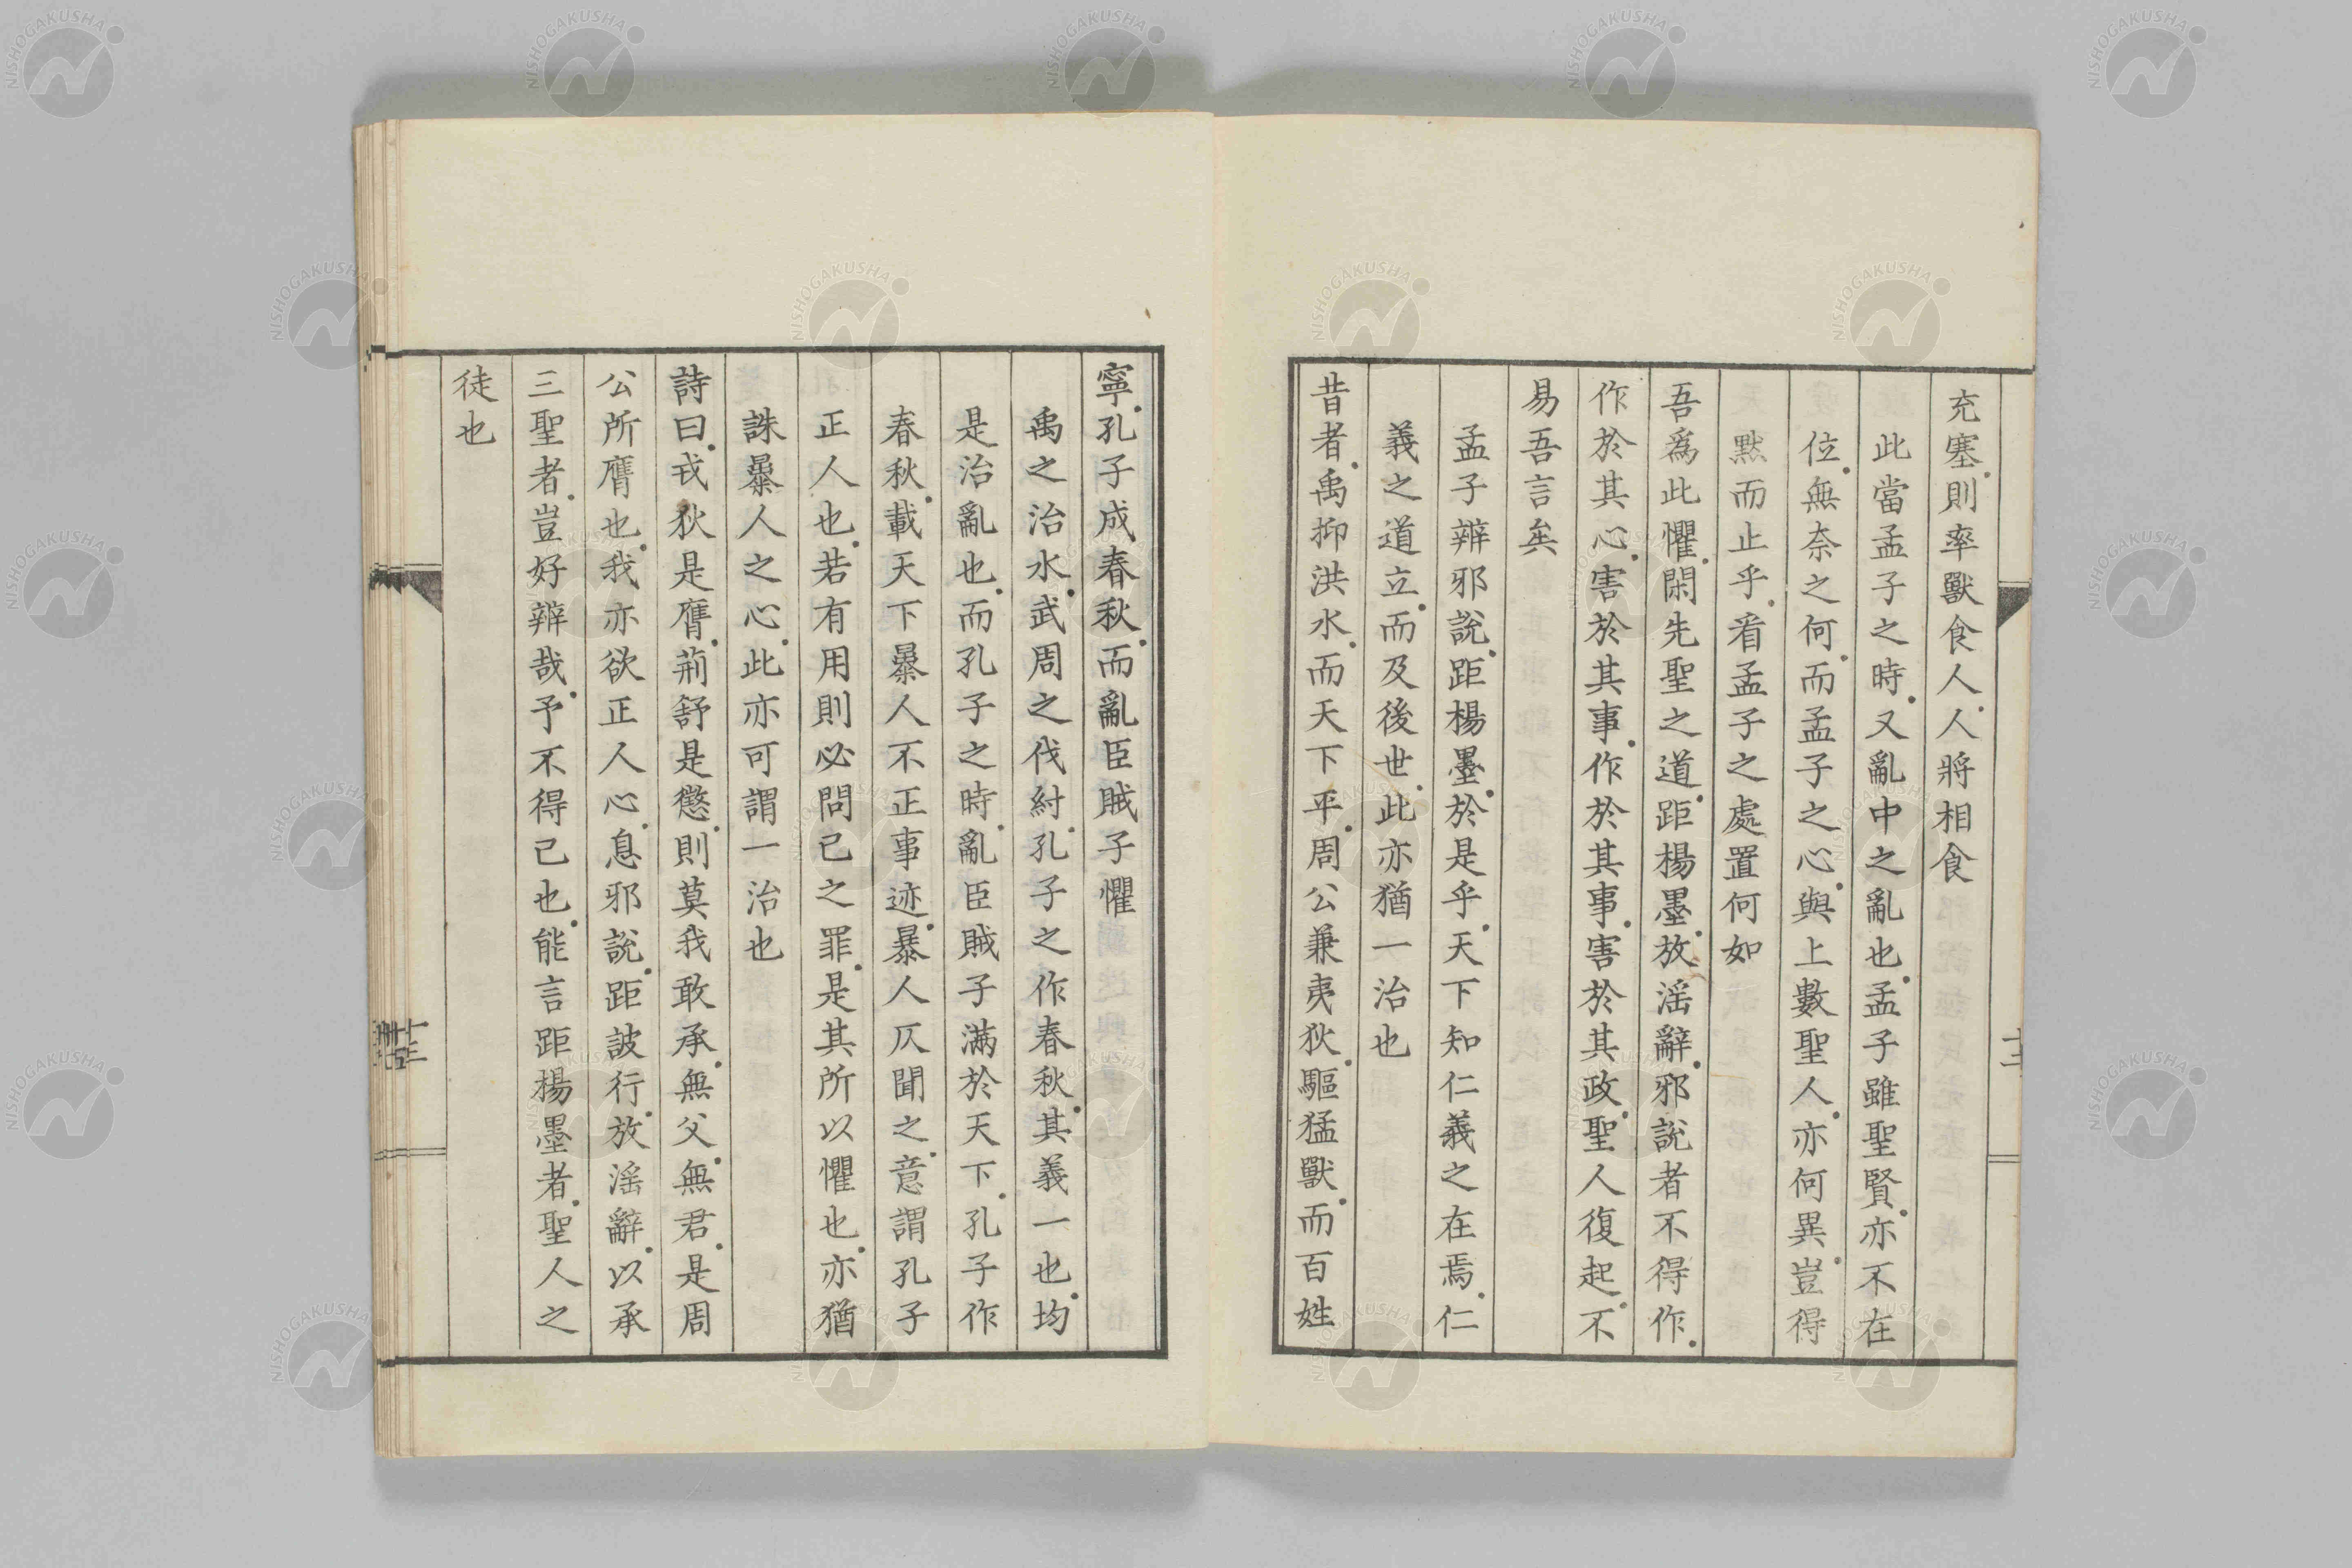 充塞.則率獸食人.人將相食
此當孟子之時.又亂中之亂也.孟子雖聖賢.亦不在
位.無奈之何.而孟子之心.與上數聖人.亦何異.豈得
黙而止乎.看孟子之處置何如
吾爲此懼.閑先聖之道.距楊墨.放滛辭.邪說者不得作.
作於其心.害於其事.作於其事.害於其政.聖人復起.不
易吾言矣
孟子辨邪說.距楊墨.於是乎.天下知仁義之在焉.仁
義之道立.而及後世.此亦猶一治也
昔者.禹抑洪水.而天下平.周公兼夷狄.驅猛獸.而百姓
寧.孔子成春秋.而亂臣賊子懼
禹之治水.武周之伐紂.孔子之作春秋.其義一也.均
是治亂也.而孔子之時.亂臣賊子滿於天下.孔子作
春秋.載天下暴人不正事迹.暴人仄聞之.意謂孔子
正人也.若有用則必問己之罪.是其所以懼也.亦猶
誅暴人之心.此亦可謂一治也
詩曰.戎狄是膺.荊舒是懲.則莫我敢承.無父.無君.是周
公所膺也.我亦欲正人心.息邪說.距詖行.放滛辭.以承
三聖者.豈好辨哉.予不得已也.能言距楊墨者.聖人之
徒也
十三
NISHOGAKUSHA